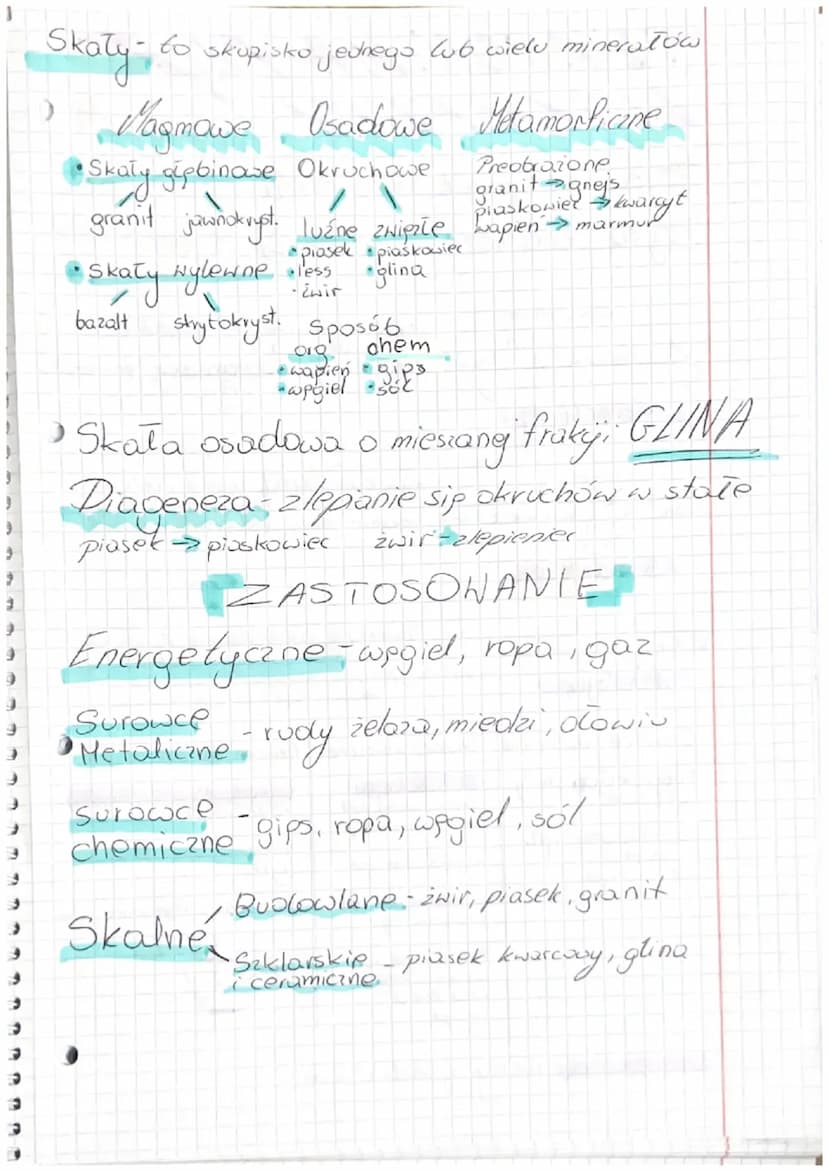 Skały - to skupisko jednego lub wielu minerałów
Magmowe Osadowe Metamorficzne
• Skały głębinowe
granit jawnokryst.
• Skały wylewne
bazalt skrytokryst.
Okruchowe
luźne zwięzłe
• piasek • piaskowiec
• less • glina
• żwir
Sposób
org chem
• wapień • gips
• węgiel • sól
Preobrażone
granit → gnejs
piaskowiec → kwarcyt
wapień → marmur
Skała osadowa o mieszanej frakcji GLINA
Diageneza - zlepianie się okruchów w stałe
piasek → piaskowiec żwir → zlepieniec
ZASTOSOWANIE
Energetyczne - węgiel, ropa, gaz
Surowce
Metaliczne - rudy żelaza, miedzi, ołowiu
Surowce
chemiczne - gips, ropa, węgiel, sól
Skalne
Budowlane - żwir, piasek, granit
Szklarskie - piasek kwarcowy, glina
i ceramiczne